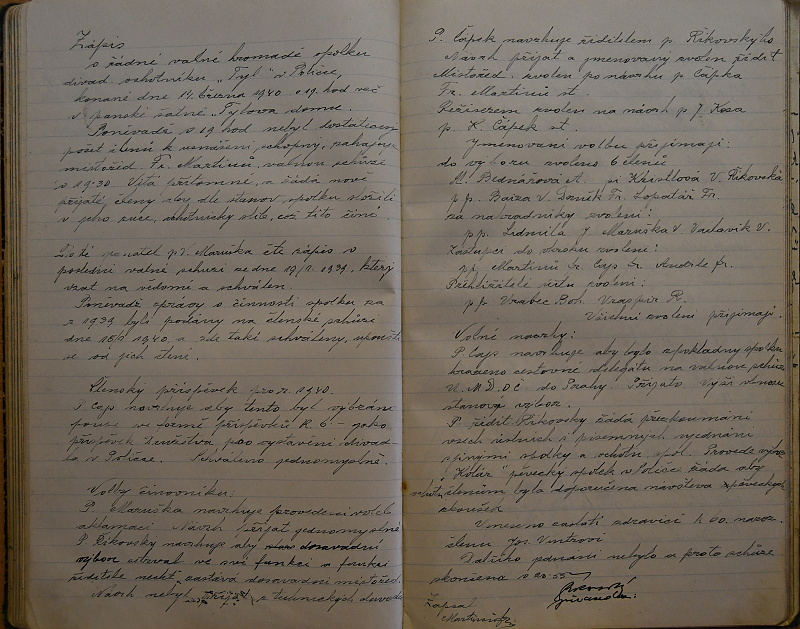 Zápis
o řádné valné hromadě spolku
divad. ochotníků „Tyl" v Poličce,
konané dne 14. března 1940 o 19. hod več
v panské šatně Tylova domu.
Poněvadž o 19 hod nebyl dostatečný
počet členů k usnášení schopný, zahajuje
místořed. Fr. Martinů valnou schůzi
o 19·30. Vítá přítomné, a žádá nově
přijaté členy aby dle stanov spolku složili
v jeho ruce, slib, což tito činí.
pan V. Maruška čte zápis o
poslední valné schůzi ze dne 1939, který
vzat na vědomí a schválen.
Poněvadž zprávy o činnosti spolku za
r 1939 byly podány na členské schůzi
dne 1940, a zde také schváleny,
se od jich čtení.
Členský příspěvek pro r. 1940.
P. Čap navrhuje aby tento byl vybírán
pouze ve formě příspěvků K 6·– jako
příspěvek družstva pro vystavění divad-
la v Poličce. Schváleno jednomyslně.
Volby činovníků:
P. Maruška navrhuje provedení voleb
aklamací. Návrh přijat jednomyslně
P Říkovský navrhuje aby dosavadní
výbor setrval ve své funkci a funkci
ředitele nechť zastává dosavadní místořed.
Návrh nebyl přijat z technických důvodů
P. Čápek navrhuje ředitelem p. Říkovského
Návrh přijat a jmenovaný zvolen řídit.
Místořed. zvolen po návrhu p Čápka
Fr. Martinů st.
Režisérem zvolen na návrh p J. Kosa
p. K. Čápek st.
Jmenovaní volbu přijímají:
do výboru zvoleno 6 členů
A. Bednářová pí V. Říkovská
p.p. V. Daněk Fr. Lopatář Fr.
za náhradníky zvoleni:
p.p. J. Maruška V. Václavík V.
Zástupci do okrsku zvoleni:
pp. Martinů Fr. Čap Fr. Fr.
Přehlížitelé účtů zvoleni:
p.p. Vrabec Boh. R.
Všichni zvolení přijímají.
Volné návrhy:
P. Čap navrhuje aby bylo z pokladny spolku
hrazeno cestovné delegátu na valnou schůzi
Ú.M.D.OČ do Prahy. Přijato. Výši obnosu
stanoví výbor.
P. řídit. Říkovský žádá přezkoumání
všech ústních i písemných ujednání
s jinými spolky a ochotn. spol. Provede výbor
„Kolár" pěvecký spolek v Poličce žádá aby
členům byla doporučena návštěva pěveckých
zkoušek
Usneseno zaslati zdravici k 60. naroz.
členu Jos.
Dalšího jednání nebylo a proto schůze
skončena o 20·55
Zapsal
Martinů Fr.